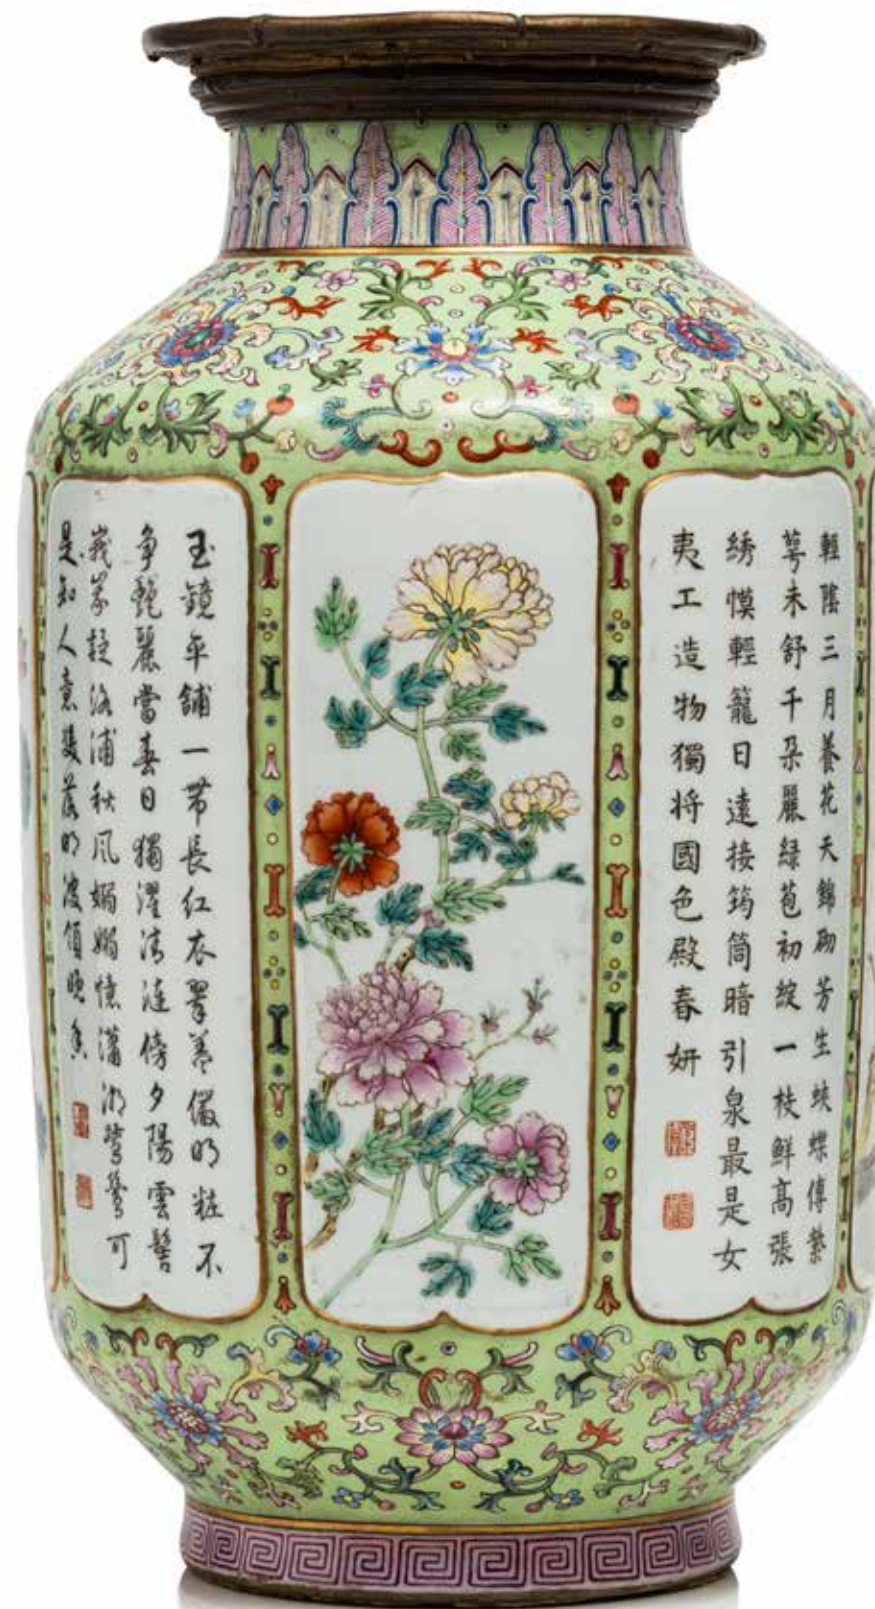 輕陰三月養花天錦砌芳生蛱蝶傳繁
萼未舒千朵麗緑苞初綻一枝鮮高張
綉幙輕籠日遠接筠筒暗引泉最是女
夷工造物獨将國色殿春妍
玉鏡平舖一帶長紅衣翠蓋儼明粧不
争艷麗當春日獨濯清漣傍夕陽雲髻
峩峩疑洛浦秋風嫋嫋憶瀟湘鴛鴦可
是知人意雙明波領晚香